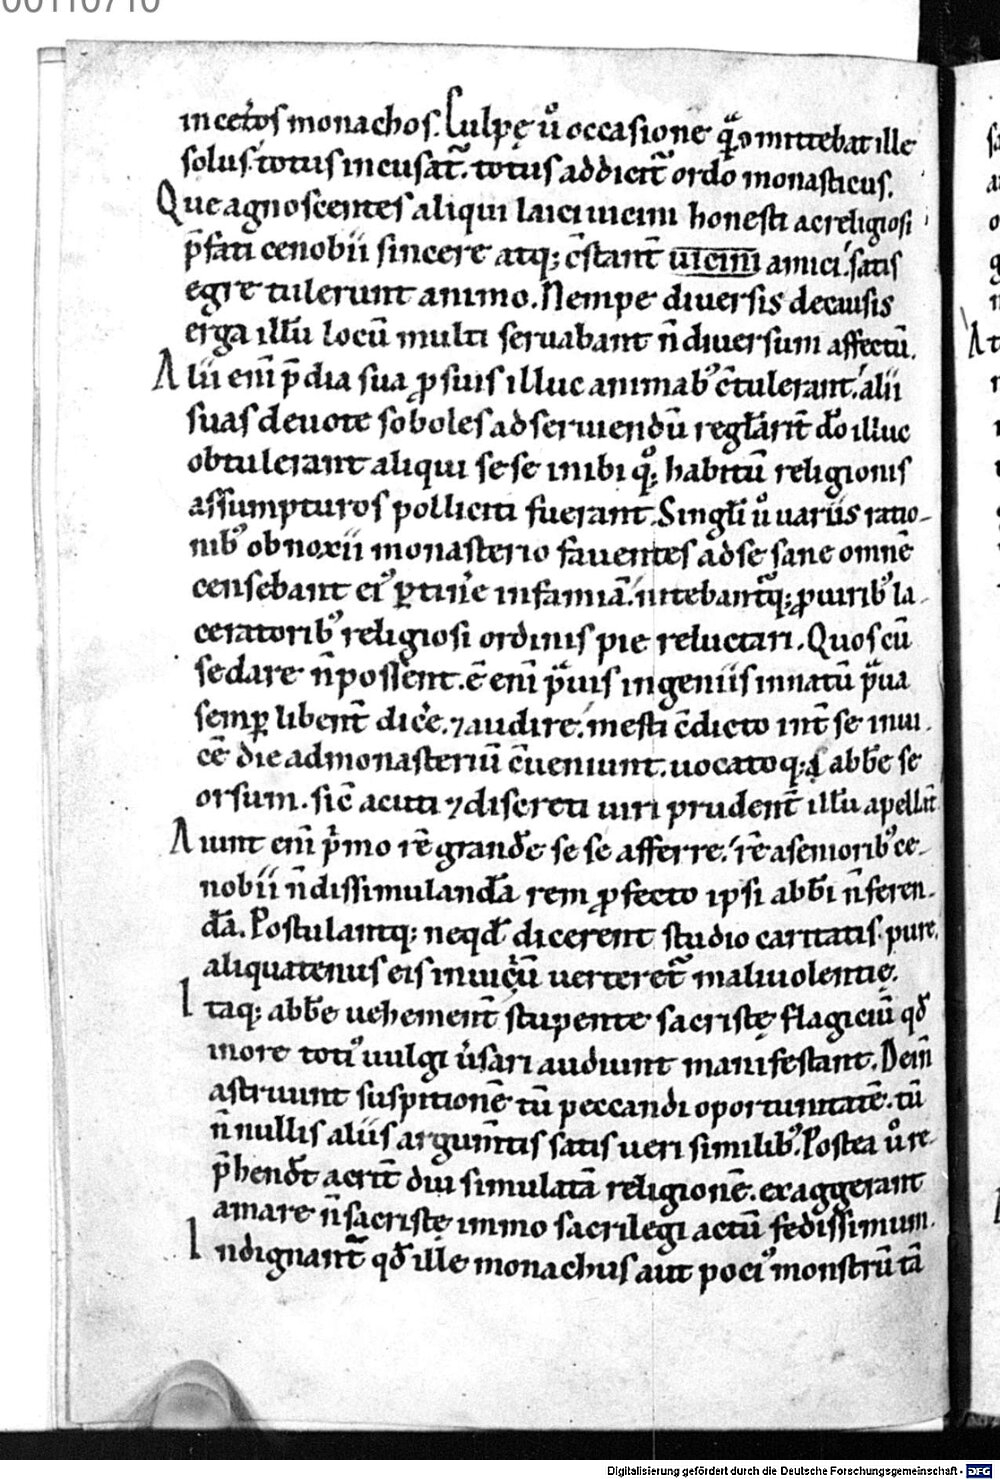 00110710
in cet̾os monachos. Culpę ů occasione q̃ ꝯmittebat ille
solus. totus incusat᷑. totus addicit᷑ ordo monasticus.
Que agnoscentes aliqui laici uicini honesti ac religiosi
p̄fati cenobii sincere atq; ꝯstant̄ uicini amici. satis
egre tulerunt animo. Nempe diuersis de causis
erga illū locū multi seruabant n̄ diuersum affectū.
Alii eni᷑ p̄dia sua ꝓ suis illuc animab᷒ c̄tulerant. alii
suas deuote soboles ad seruiendū reglarit̄ do illuc
obtulerant aliqui se se inibi qͦ; habitū religionis
assumpturos polliciti fuerant. Singli ů uariis ratio-
nib᷒ obnoxii monasterio fauentes ad se sane omnē
censebant ei᷒ ꝑtin̾e infamiā. nitebant᷑q; ꝓ uirib᷒ la-
ceratorib᷒ religiosi ordinis pie reluctari. Quos cū
sedare n̄ possent. ē eni᷑ p̃uis ingeniis innatū p̃ua
semꝑ libent̄ dic̾e. ⁊ audire. mesti c̄dicto int̄ se inui-
cē die ad monasteriū c̄ueniunt. uocatoq; abbe se
orsum. sic̄ acuti ⁊ discreti uiri prudent̄ illū apellāt
Aiunt eni᷑ p̾mo rē grandē se se afferre. rē a seniorib᷒ ce-
nobii n̄ dissimulandā rem ꝓfecto ipsi abbi n̄ feren-
dā. Postulantq; ne qđ dicerent studio caritatis pure,
aliquatenus eis in uiciū uerteret᷑ maliuolentię.
Itaq; abbe uehement̄ stupente sacristę flagiciū qđ
in ore toti᷒ uulgi u̾sari audiunt manifestant. Dein̄
astruunt suspitionē tū peccandi oportunitatē. tū
n̄nullis aliis argum̄tis satis ueri similib᷒. Postea ů re-
p̄hendt̄ acrit̄ diu simulatā religionē. exaggerant
amare n̄ sacristę immo sacrilegi actū fedissimum.
Indignant᷑ qđ ille monachus aut poci᷒ monstrū tā
Digitalisierung gefördert durch die Deutsche Forschungsgemeinschaft - DFG